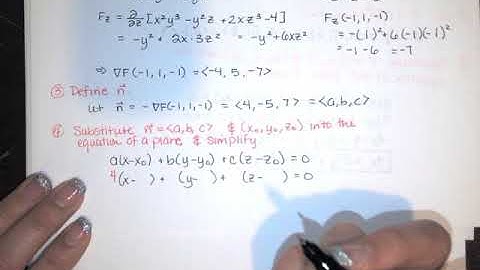 F_z = ∂/∂z [x²y³ - y²z + 2xz³ - 4]
F_z (-1, 1, -1)
= -y² + 2x·3z² = -y² + 6xz²
= -(1)² + 6(-1)(-1)²
= -1 - 6 = -7
⇒ ∇F(-1, 1, -1) = <-4, 5, -7>
③ Define n⃗
Let n⃗ = -∇F(-1, 1, -1) = <4, -5, 7> = <a, b, c>
④ Substitute n⃗ = <a, b, c> & (x₀, y₀, z₀) into the
equation of a plane & simplify
a(x-x₀) + b(y-y₀) + c(z-z₀) = 0
4(x- ) + (y- ) + (z- ) = 0